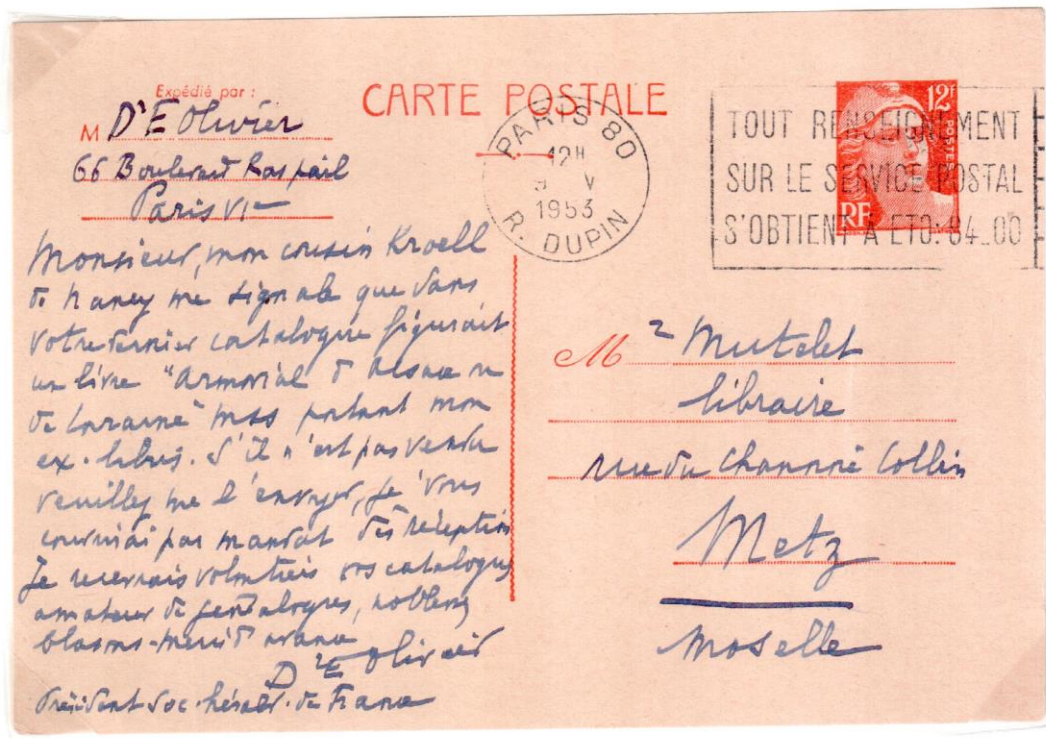 Expédié par :
M Dr E Olivier
66 Boulevard Raspail
Paris VIe
CARTE POSTALE
PARIS 80
12H
9 V
1953
R. DUPIN
TOUT RENSEIGNEMENT
SUR LE SERVICE POSTAL
S'OBTIENT A ETO: 84_00
12F
POSTES
RF
Monsieur, mon cousin Kroell
de Nancy me signale que dans
votre dernier catalogue figurait
un livre "Armorial d'Alsace
de Lorraine" mss portant mon
ex-libris. S'il n'est pas vendu
veuillez me l'envoyer, je vous
couvrirai par mandat dès réception
Je recevrais volontiers vos catalogues
amateur de généalogies, nobles
blasons - merci d'avance
Dr E Olivier
Président Soc. hérald. de France
M r Mutelet
libraire
rue du Chanoine Collin
Metz
Moselle